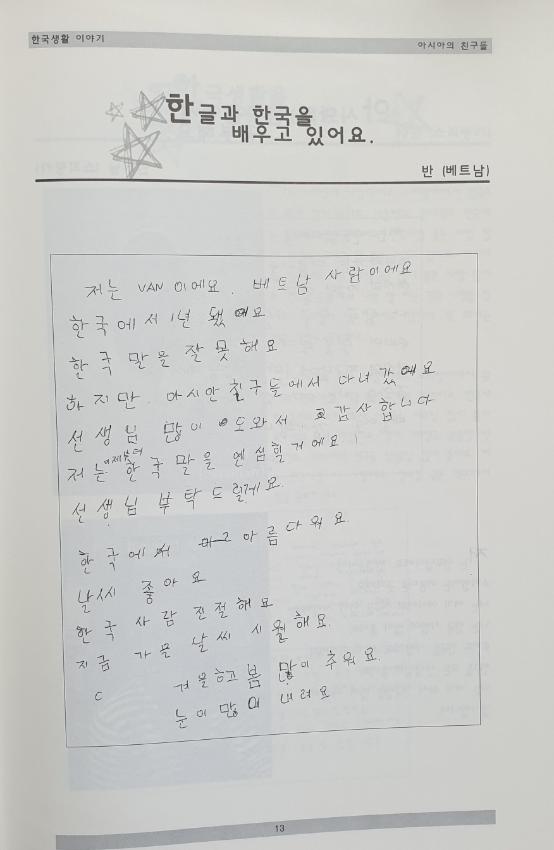 한국생활 이야기
아시아의 친구들
한글과 한국을
배우고 있어요.
반 (베트남)
저는 VAN 이에요. 베트남 사람이에요
한국에서 1년 됐에요
한국 말을 잘 못해요
하지만. 아시안 친구들에서 다녀갔에요
선생님 많이 도와서 감사합니다
저는 이제부터 한국 말을 엔심할거에요!
선생님 부탁드릴게요.
한국에서 아름다워요.
날씨 좋아요
한국 사람 진절해요
지금 가을 날씨 시월해요.
겨울하고 봄 많이 추워요.
눈이 많이 내려요
13